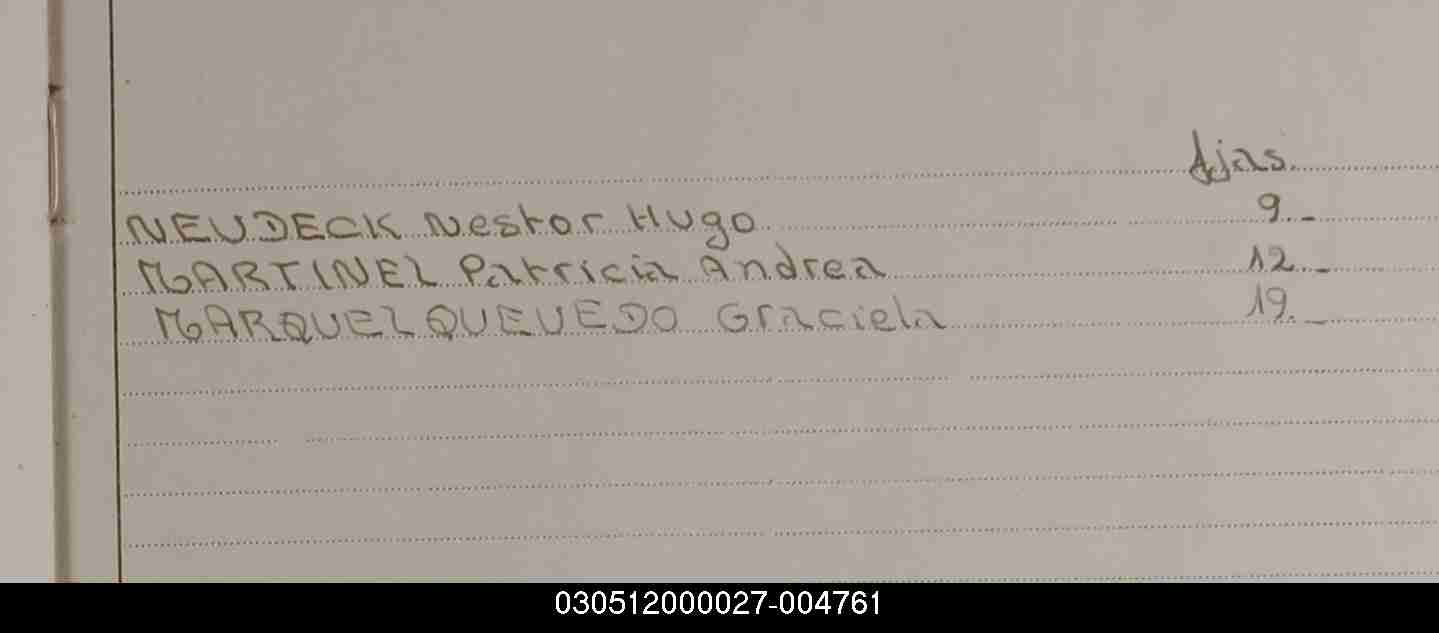 fjas.
NEUDECK Nestor Hugo 9._
MARTINEZ Patricia Andrea 12._
MARQUEZ QUEVEDO Graciela 19._
030512000027-004761